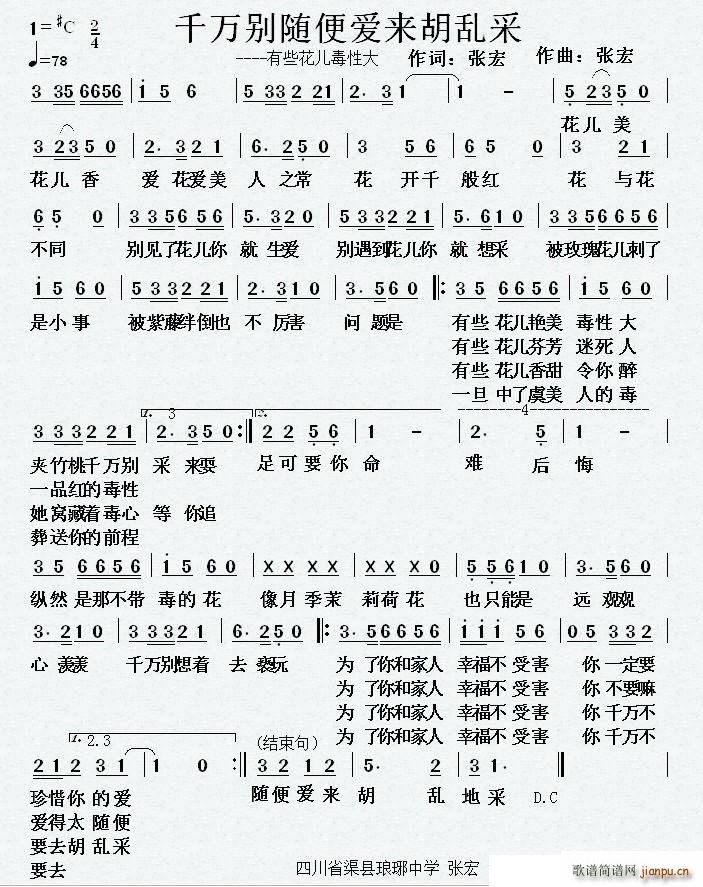 1=#C 2/4
千万别随便爱来胡乱采
♩=78
----有些花儿毒性大 作词：张宏 作曲：张宏
3 35 6656 | i 5 6 | 5 33 2 21 | 2. 3 1 | 1 - | 5 23 5 0 |
花儿 美
3 235 0 | 2. 321 | 6. 25 0 | 3 45 | 65 0 | 3 21 |
花儿香 爱 花爱美 人 之常 花 开千 般红 花 与花
6 5 0 | 335656 | 5. 320 | 335221 | 5. 610 | 66656 |
不同 别见了花儿你 就 生爱 别遇到花儿你 就 想采 被玫瑰花儿刺了
i 5 60 | 533221 | 2. 310 | 3. 560 |: 35 6656 | i 5 60 |
是小事 被紫藤绊倒也 不 厉害 问 题是 有些 花儿艳美 毒性大
有些 花儿芬芳 迷死人
有些 花儿香甜 令你醉
一旦 中了虞美 人的毒
1. 3 2. 4
333221 | 2. 350 :| 2 2 56 | 1 - | 2. 5 | 1 - |
夹竹桃千万别 采 来耍 足可要你 命 难 后 悔
一品红的毒性
她窝藏着毒心 等 你追
葬送你的前程
35 6656 | i 5 60 | X X X X | X X X 0 | 5561 0 | 3. 560 |
纵然 是那不带 毒的花 像月季茉 莉荷花 也只能是 远 观观
3. 210 | 33321 | 6. 250 |: 3. 56656 | iii 5 60 | 05 332 |
心 羡羡 千万别想着 去 亵玩 为 了你和家人 幸福不 受害 你 一定要
为 了你和家人 幸福不 受害 你 不要嘛
为 了你和家人 幸福不 受害 你 千万不
为 了你和家人 幸福不 受害 你 千万不
1. 2.3 (结束句)
21 2 2 31 | 1 0 :| 32 12 | 5. 2 | 31 5 |
珍惜你 的 爱 随便爱来 胡 乱 地采 D.C
爱得太 随便
要去胡 乱采
要去
四川省渠县琅琊中学 张宏
歌谱简谱网
jianpu.cn